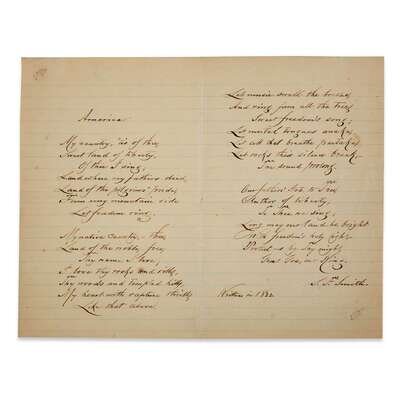 America
My country, 'tis of thee,
Sweet land of liberty,
Of thee I sing,
Land where my fathers died,
Land of the pilgrims' pride,
From every mountain side
Let freedom ring.
My native country, thee,
Land of the noble free,
Thy name I love,
I love thy rocks and rills,
Thy woods and templed hills,
My heart with rapture thrills,
Like that above.
Let music swell the breeze,
And ring from all the trees
Sweet freedom's song;
Let mortal tongues awake,
Let all that breathe partake,
Let rocks their silence break,
The sound prolong
Our fathers' God to Thee
Author of liberty,
To Thee we sing,
Long may our land be bright
With freedom's holy light,
Protect us by Thy might,
Great God, our King.
Written in 1832
S. F. Smith.